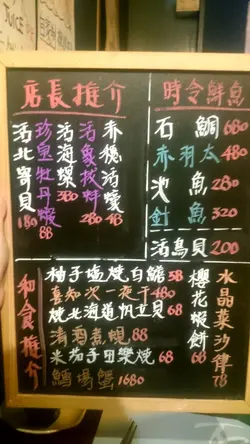 店長推介
赤穩活蠔 48
活象拔蚌 280
活海螺 380
珍皇牡丹蝦 88
活北寄貝 180
時令鮮魚
石鯛 680
赤羽太 480
池魚 280
針魚 320
活鳥貝 200
和食推介
柚子塩燒白鱔 58
喜知次一夜干 480
燒北海道帆立貝 68
清酒煮蜆 88
米茄子田樂燒 68
鱈場蟹 1680
櫻花蝦餅 68
水晶菜沙律 78